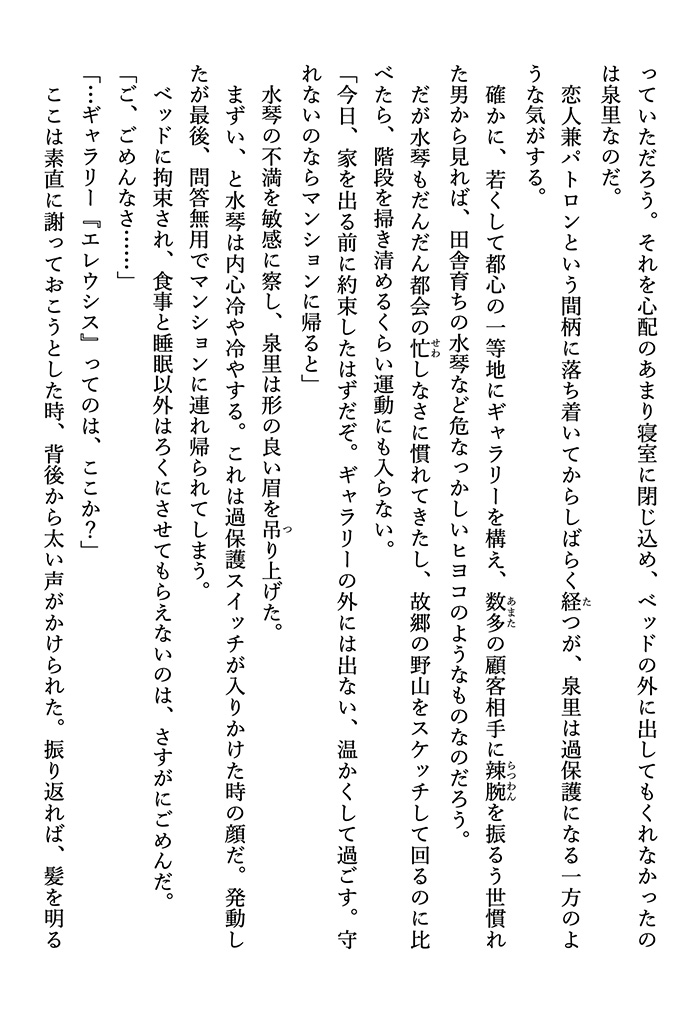 っていただろう。それを心配のあまり寝室に閉じ込め、ベッドの外に出してもくれなかったの
は泉里なのだ。
恋人兼パトロンという間柄に落ち着いてからしばらく経つが、泉里は過保護になる一方のよ
うな気がする。
確かに、若くして都心の一等地にギャラリーを構え、数多の顧客相手に辣腕を振るう世慣れ
た男から見れば、田舎育ちの水琴など危なっかしいヒヨコのようなものなのだろう。
だが水琴もだんだん都会の忙しなさに慣れてきたし、故郷の野山をスケッチして回るのに比
べたら、階段を掃き清めるくらい運動にも入らない。
「今日、家を出る前に約束したはずだぞ。ギャラリーの外には出ない、温かくして過ごす。守
れないのならマンションに帰ると」
水琴の不満を敏感に察し、泉里は形の良い眉を吊り上げた。
まずい、と水琴は内心冷や冷やする。これは過保護スイッチが入りかけた時の顔だ。発動し
たが最後、問答無用でマンションに連れ帰られてしまう。
ベッドに拘束され、食事と睡眠以外はろくにさせてもらえないのは、さすがにごめんだ。
「ご、ごめんなさ……」
「…ギャラリー『エレウシス』ってのは、ここか？」
ここは素直に謝っておこうとした時、背後から太い声がかけられた。振り返れば、髪を明る